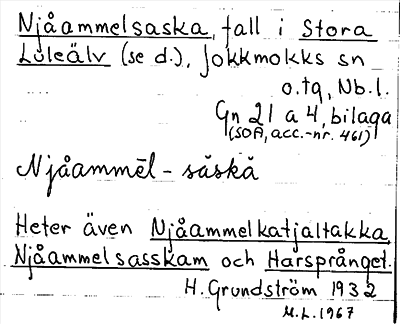 Njåammelsaska, fall i Stora
Luleälv (se d.), Jokkmokks sn
o. tq, Nb. l.
Gn 21 a 4, bilaga
(SOA, acc.-nr. 461)
Njåammēl - săskă
Heter även Njåammelkatjaltakka,
Njåammelsasskam och Harsprånget.
H. Grundström 1932
M. L. 1967